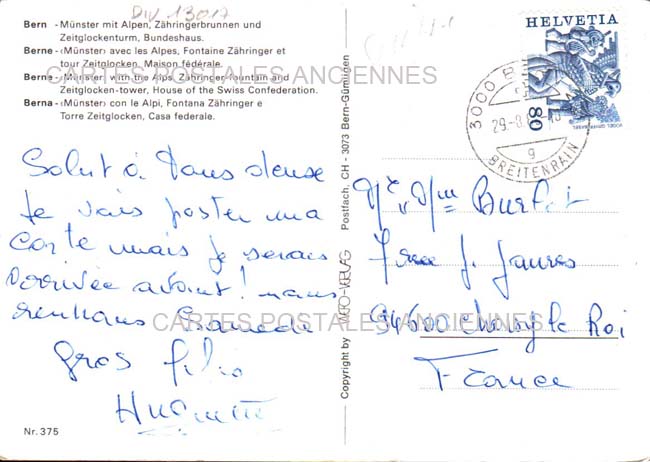 DIV 13017
Bern - Münster mit Alpen, Zähringerbrunnen und
Zeitglockenturm, Bundeshaus.
Berne - (Münster) avec les Alpes, Fontaine Zähringer et
tour Zeitglocken, Maison fédérale.
Berne - (Münster) with the Alps, Zähringer-fountain and
Zeitglocken-tower, House of the Swiss Confederation.
Berna - (Münster) con le Alpi, Fontana Zähringer e
Torre Zeitglocken, Casa federale.
CARTES POSTALES ANCIENNES
Salut à Tous deux
Je vais poster ma
carte mais je serais
arrivée avant! nous
rentrons Samedi
Gros
Huguette
Nr. 375
Copyright by MRO-VERLAG Postfach, CH - 3073 Bern-Gümligen
HELVETIA
80
3000 BE
29.-8.
9
BREITENRAIN
Mr Mme
J. Jaures
94600 Choisy le Roi
France
CARTES POSTALES ANCIENNES